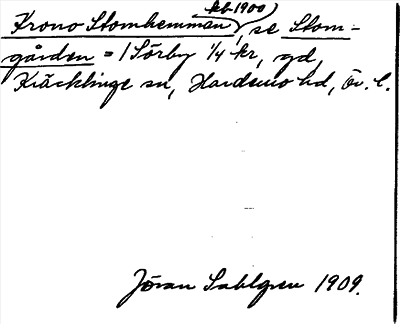 Krono Stomhemman (kb 1900), se Stom-
gården = 1 Sörby 1/4 kr, gd,
Kräcklinge sn, Hardemo hd, Ör. l.
Jöran Sahlgren 1909.